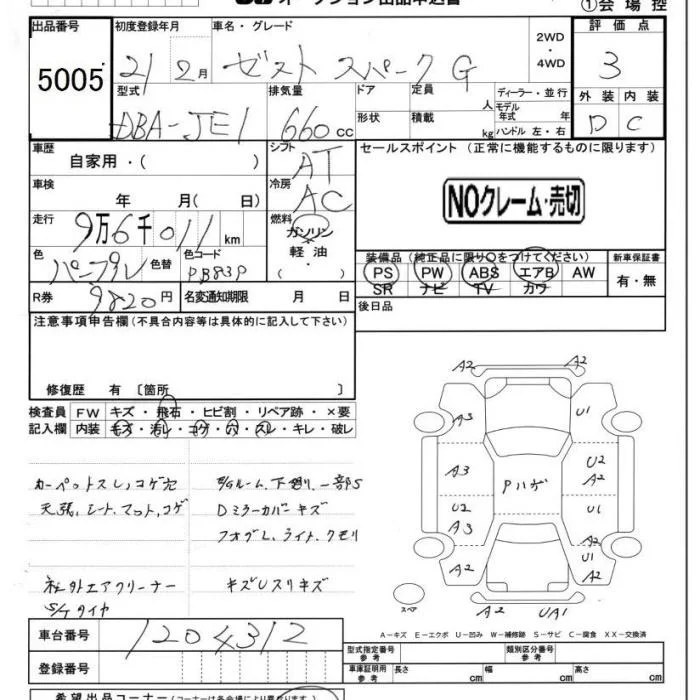 オークション出品申込書
①会場控
出品番号 初度登録年月 車名・グレード 2WD・4WD 評価点
5005 21年2月 ゼスト スパーク G 3
型式 排気量 ドア 定員 人 ディーラー・並行 外装 内装
DBA-JE1 660cc 形状 積載 kg モデル年式 年 ハンドル 左・右 D C
車歴 自家用・( ) シフト AT セールスポイント (正常に機能するものに限ります)
車検 年 月( 日) 冷房 AC NOクレーム・売切
走行 9万6千011km 燃料 ガソリン 軽油 ( )
色 パープル 色替 色コード PB83P
装備品 (純正品に限り○をつけてください) 新車保証書
PS PW ABS エアB AW 有・無
SR ナビ TV カワ
R券 9820円 名変通知期限 月 日 後日品
注意事項申告欄(不具合内容等は具体的に記入して下さい)
修復歴 有 〔箇所 〕
検査員 FW キズ・飛石・ヒビ割・リペア跡・×要
記入欄 内装 キズ・汚レ・コゲ・穴・スレ・キレ・破レ
カーペットスレ、コゲ穴
天張、シート、マット、コゲ
社外エアクリーナー
S/Tタイヤ
E/Gルーム、下廻り、一部S
Dミラーカバーキズ
フォグL、ライト、クモリ
キズUスリキズ
A2 A2
A3 U1
A3 U2 A2
Pハゲ
U2 A3 U1
A2 U1 A2
スペア
A2 UA1
A-キズ E-エクボ U-凹み W-補修跡 S-サビ C-腐食 XX-交換済
車台番号 1204312
型式指定番号 参考 類別区分番号 参考
登録番号 車庫証明用 参考 長さ cm 幅 cm 高さ cm
希望出品コーナー(コーナーは各会場により異なります)